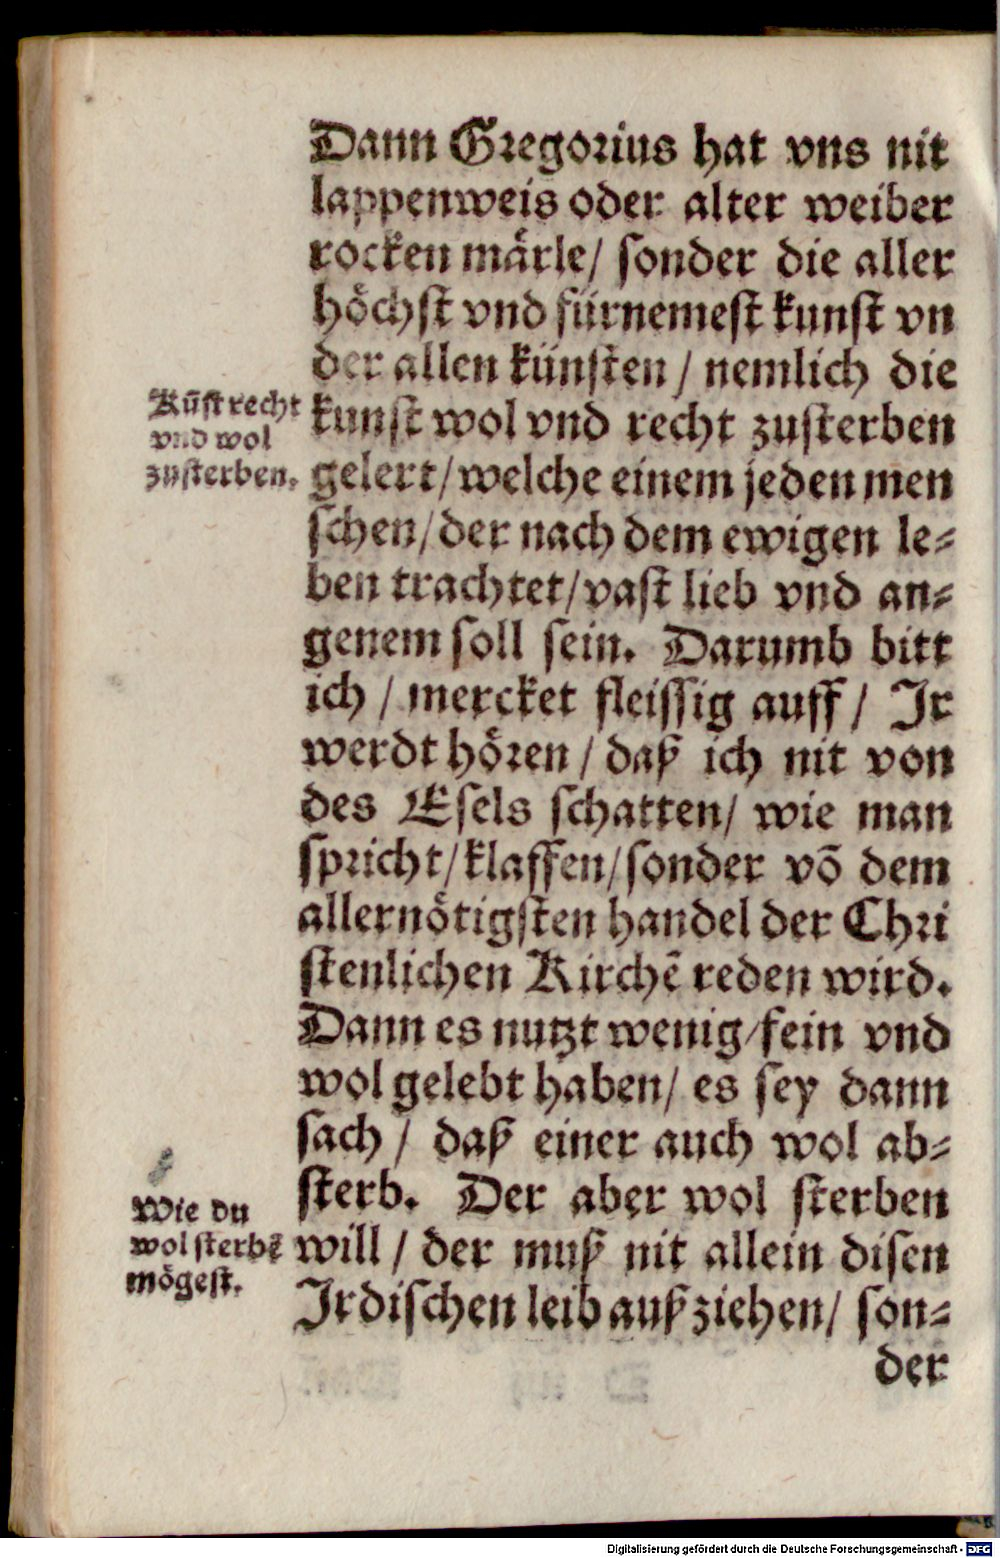 Dann Gregorius hat vns nit
lappenweis oder alter weiber
rocken märle/ sonder die aller
höchst vnd fürnemest kunst vn
der allen künsten / nemlich die
Kūst recht
vnd wol
zusterben.
kunst wol vnd recht zusterben
gelert/ welche einem jeden men
schen/ der nach dem ewigen le⸗
ben trachtet/ vast lieb vnd an⸗
genem soll sein. Darumb bitt
ich / mercket fleissig auff / Ir
werdt hören / daß ich nit von
des Esels schatten/ wie man
spricht/ klaffen/ sonder vō dem
allernötigsten handel der Chri
stenlichen Kirchē reden wird.
Dann es nutzt wenig/ fein vnd
wol gelebt haben/ es sey dann
sach / daß einer auch wol ab⸗
sterb. Der aber wol sterben
Wie du
wol sterbē
mögest.
will / der muß nit allein disen
Irdischen leib außziehen/ son⸗
der
Digitalisierung gefördert durch die Deutsche Forschungsgemeinschaft - DFG